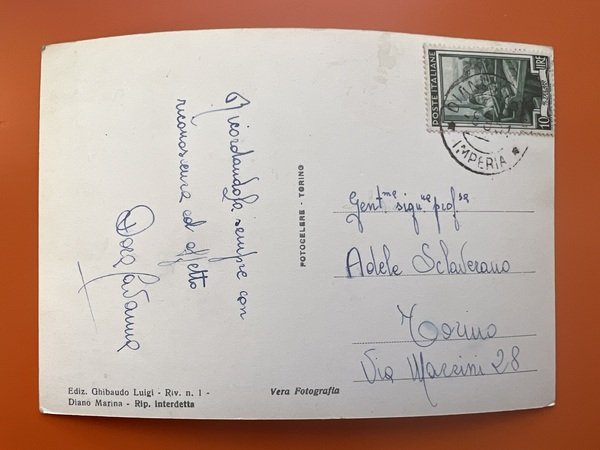 Ricordandola sempre con
riconoscenza ed affetto
POSTE ITALIANE
LIRE
10
DIANO
IMPERIA
FOTOCELERE - TORINO
Gent.ma sig.na prof.ssa
Adele Sclaverano
Torino
Via Mazzini 28
Ediz. Ghibaudo Luigi - Riv. n. 1 -
Diano Marina - Rip. interdetta
Vera Fotografia